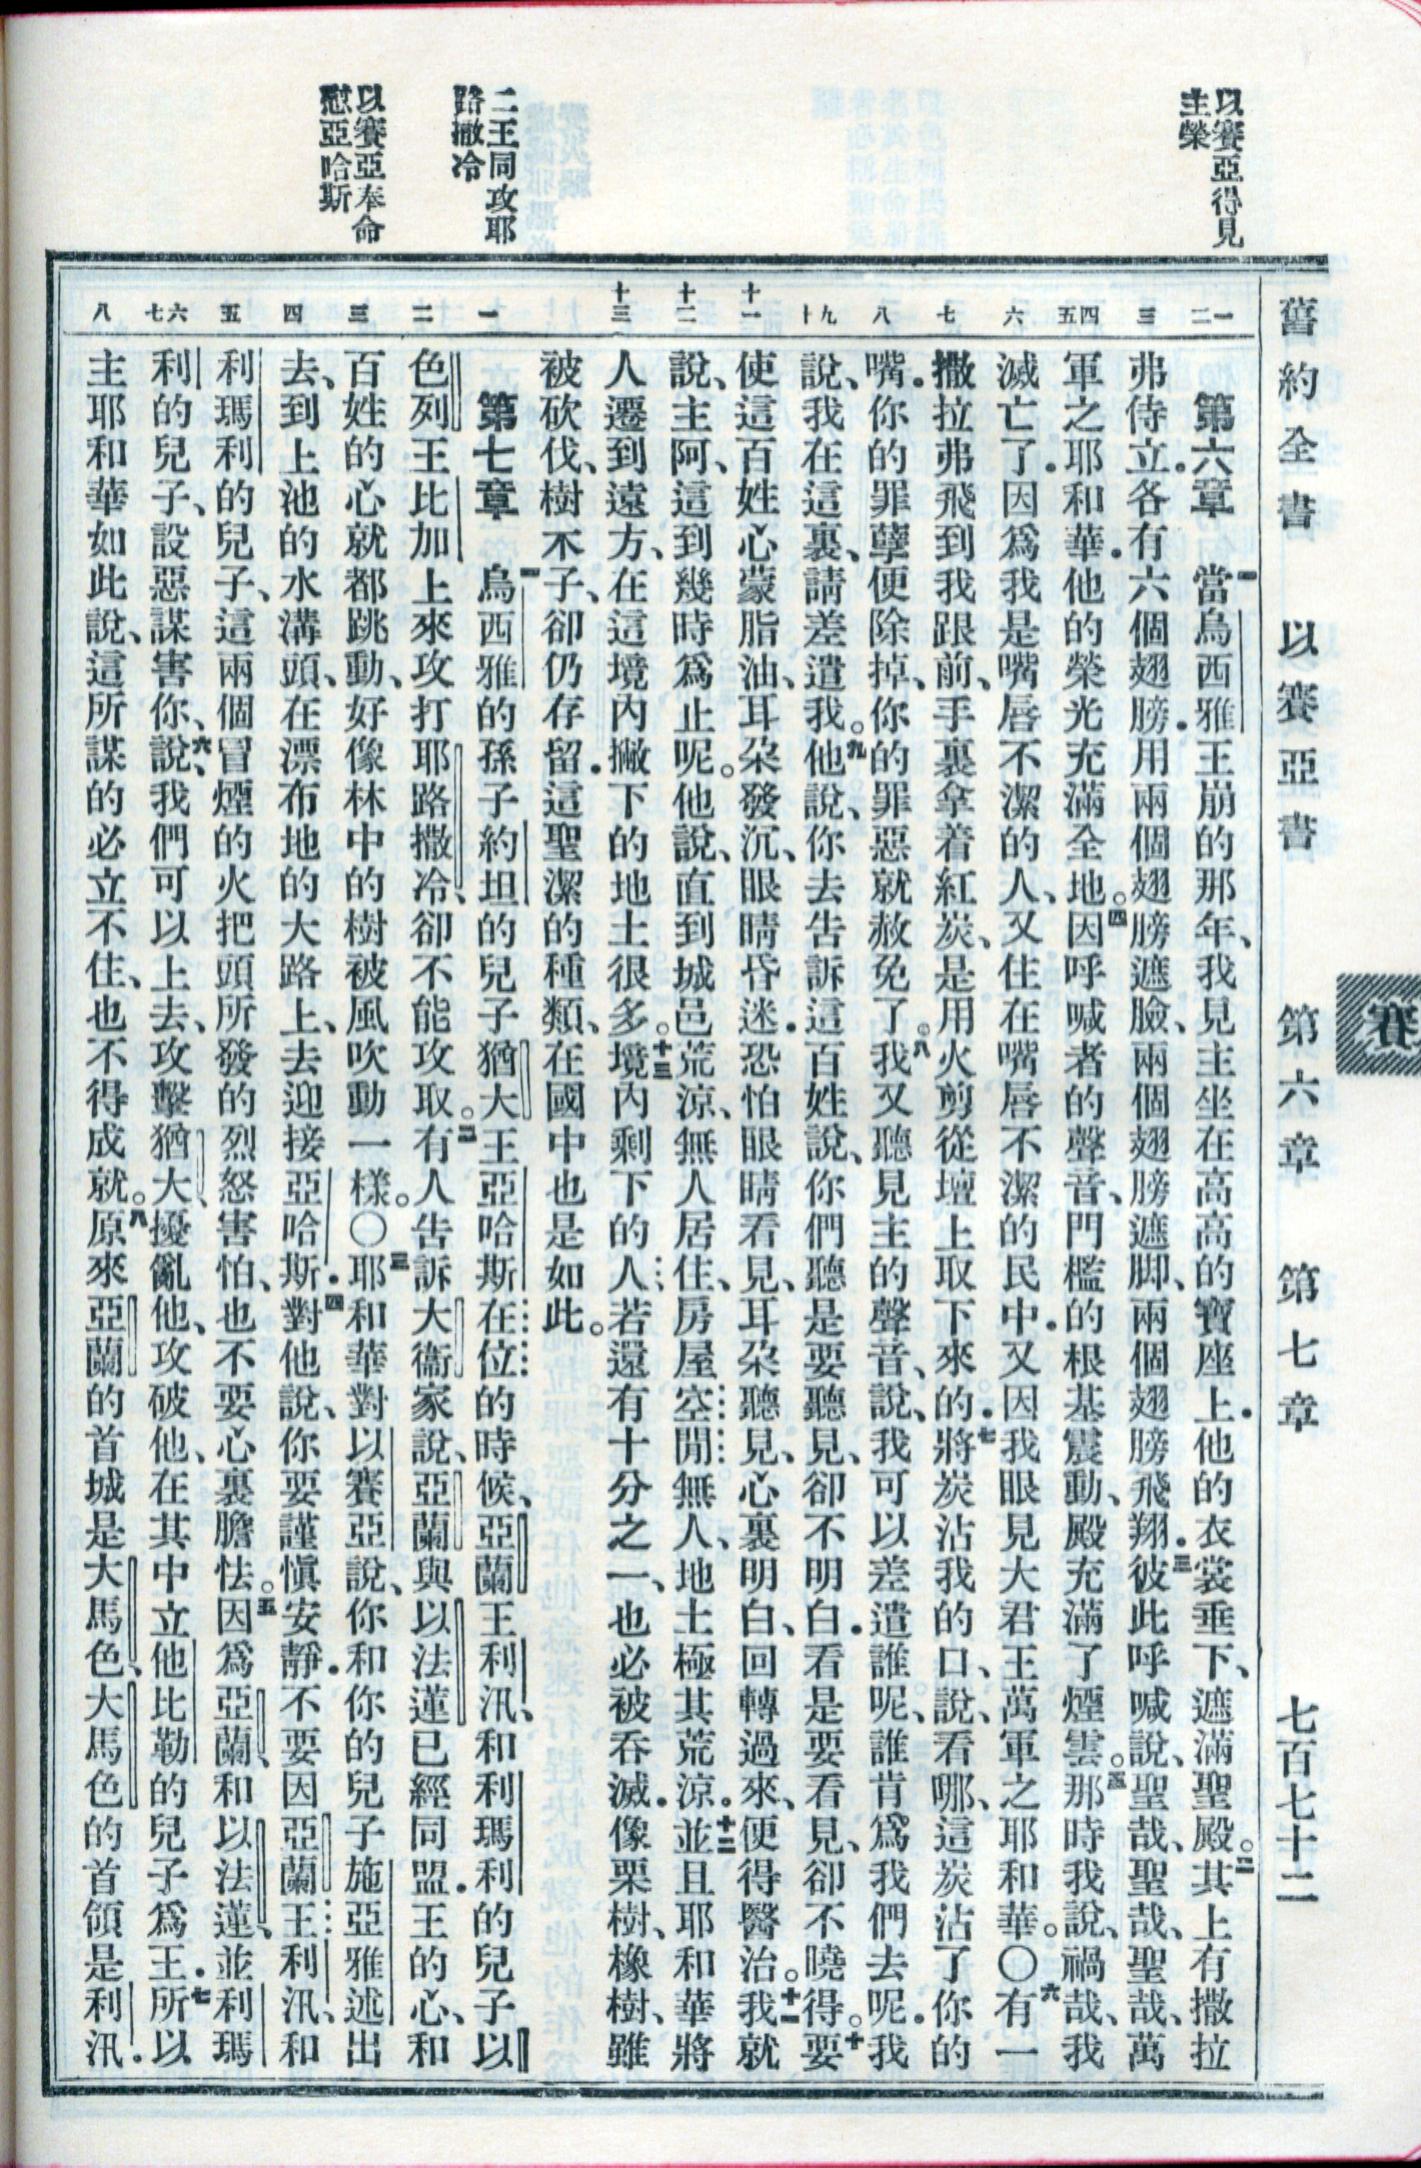 舊約全書　以賽亞書　第六章　第七章　七百七十二
賽
以賽亞得見
主榮
二王同攻耶
路撒冷
以賽亞奉命
慰亞哈斯
一二
三
四五
六
七
八
九十
十一
十二
十三
一
二
三
四
五
六七
八
第六章　一當烏西雅王崩的那年、我見主坐在高高的寶座上．他的衣裳垂下、遮滿聖殿。二其上有撒拉
弗侍立．各有六個翅膀．用兩個翅膀遮臉、兩個翅膀遮脚、兩個翅膀飛翔．三彼此呼喊說、聖哉、聖哉、聖哉、萬
軍之耶和華．他的榮光充滿全地。四因呼喊者的聲音、門檻的根基震動、殿充滿了煙雲。五那時我說、禍哉、我
滅亡了．因爲我是嘴唇不潔的人、又住在嘴唇不潔的民中．又因我眼見大君王萬軍之耶和華。〇六有一
撒拉弗飛到我跟前、手裏拿着紅炭、是用火剪從壇上取下來的．七將炭沾我的口、說、看哪、這炭沾了你的
嘴．你的罪孽便除掉、你的罪惡就赦免了。八我又聽見主的聲音、說、我可以差遣誰呢、誰肯爲我們去呢．我
說、我在這裏、請差遣我。九他說、你去告訴這百姓說、你們聽是要聽見、卻不明白．看是要看見、卻不曉得。十要
使這百姓心蒙脂油、耳朵發沉、眼睛昏迷．恐怕眼睛看見、耳朵聽見、心裏明白、回轉過來、便得醫治。十一我就
說、主阿、這到幾時爲止呢。他說、直到城邑荒涼、無人居住、房屋空閒無人、地土極其荒涼．十二並且耶和華將
人遷到遠方、在這境內撇下的地土很多。十三境內剩下的人、若還有十分之一、也必被吞滅．像栗樹、橡樹、雖
被砍伐、樹不子、卻仍存留．這聖潔的種類、在國中也是如此。
第七章　一烏西雅的孫子約坦的兒子猶大王亞哈斯在位的時候、亞蘭王利汛、和利瑪利的兒子以
色列王比加上來攻打耶路撒冷、卻不能攻取。二有人告訴大衞家說、亞蘭與以法蓮已經同盟．王的心、和
百姓的心就都跳動、好像林中的樹被風吹動一樣。〇三耶和華對以賽亞說、你和你的兒子施亞雅述出
去、到上池的水溝頭、在漂布地的大路上、去迎接亞哈斯．四對他說、你要謹慎安靜．不要因亞蘭王利汛、和
利瑪利的兒子、這兩個冒煙的火把頭所發的烈怒害怕、也不要心裏膽怯。五因爲亞蘭和以法蓮、並利瑪
利的兒子、設惡謀害你、六說、我們可以上去、攻擊猶大、擾亂他、攻破他、在其中立他比勒的兒子爲王．七所以
主耶和華如此說、這所謀的必立不住、也不得成就。八原來亞蘭的首城是大馬色、大馬色的首領是利汛．